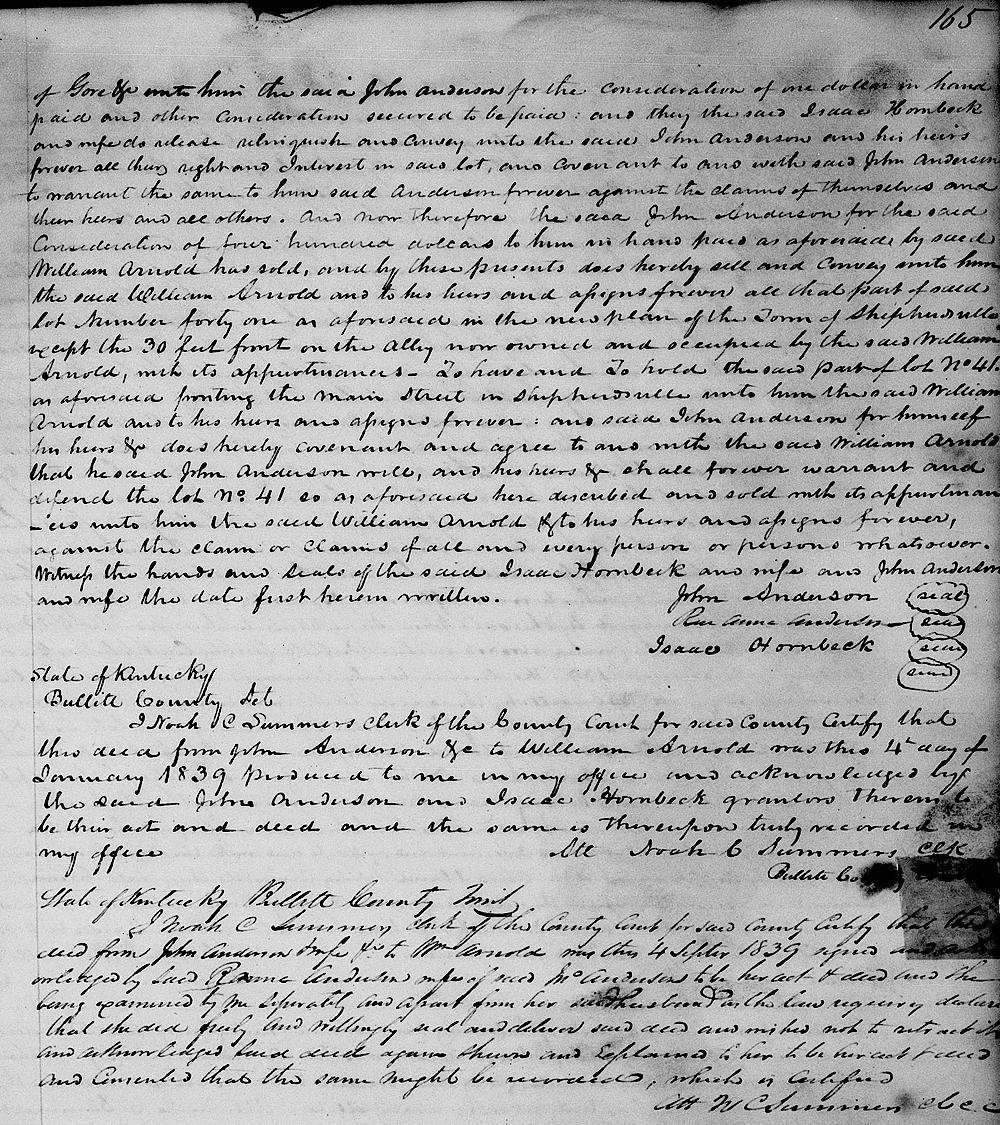 165
of Gore &c unto him the said John Anderson for the consideration of one dollar in hand
paid and other consideration secured to be paid: and they the said Isaac Hornbeck
and wife do release relinquish and convey unto the said John Anderson and his heirs
forever all their right and Interest in said lot, and covenant to and with said John Anderson
to warrant the same to him said Anderson forever against the claims of themselves and
their heirs and all others. And now therefore the said John Anderson for the said
Consideration of four hundred dollars to him in hand paid as aforesaid by said
William Arnold has sold, and by these presents does hereby sell and convey unto him
the said William Arnold and to his heirs and assigns forever all that part of said
lot Number forty one as aforesaid in the new plan of the Town of Shepherdsville
except the 30 feet front on the Alley now owned and occupied by the said William
Arnold, with its appurtenances - To have and To hold the said part of lot No 41.
as aforesaid fronting the main Street in Shepherdsville unto him the said William
Arnold and to his heirs and assigns forever: and said John Anderson for himself
his heirs &c does hereby covenant and agree to and with the said William Arnold
that he said John Anderson will, and his heirs &c shall forever warrant and
defend the lot No. 41 so as aforesaid here described and sold with its appurtenan
-ces unto him the said William Arnold & to his heirs and assigns forever,
against the claim or claims of all and every person or persons whatsoever.
Witness the hands and seals of the said Isaac Hornbeck and wife and John Anderson
and wife the date first herein written.
John Anderson (seal)
Anne Anderson (seal)
Isaac Hornbeck (seal)
(seal)
State of Kentucky
Bullitt County Sct
I Noah C Summers Clerk of the County Court for said County Certify that
this deed from John Anderson &c to William Arnold was this 4th day of
January 1839 produced to me in my office and acknowledged by
the said John Anderson and Isaac Hornbeck grantors therein to
be their act and deed and the same is thereupon truly recorded in
my office Att Noah C Summers Clk
Bullitt County
State of Kentucky Bullitt County
I Noah C Summers Clerk of the County Court for said County Certify that this
deed from John Anderson & wife &c to Wm Arnold was this 4 Septr 1839 signed
by said Anderson wife of said Anderson to be her act & deed and she
being examined by me seperately and apart from her said husband as the law requires declared
that she did freely and willingly seal and deliver said deed and wishes not to retract it
and acknowledged said deed again shewn and Explained to her to be her act & deed
and Consented that the same might be recorded, which is Certified
Att N C Summers c b c c